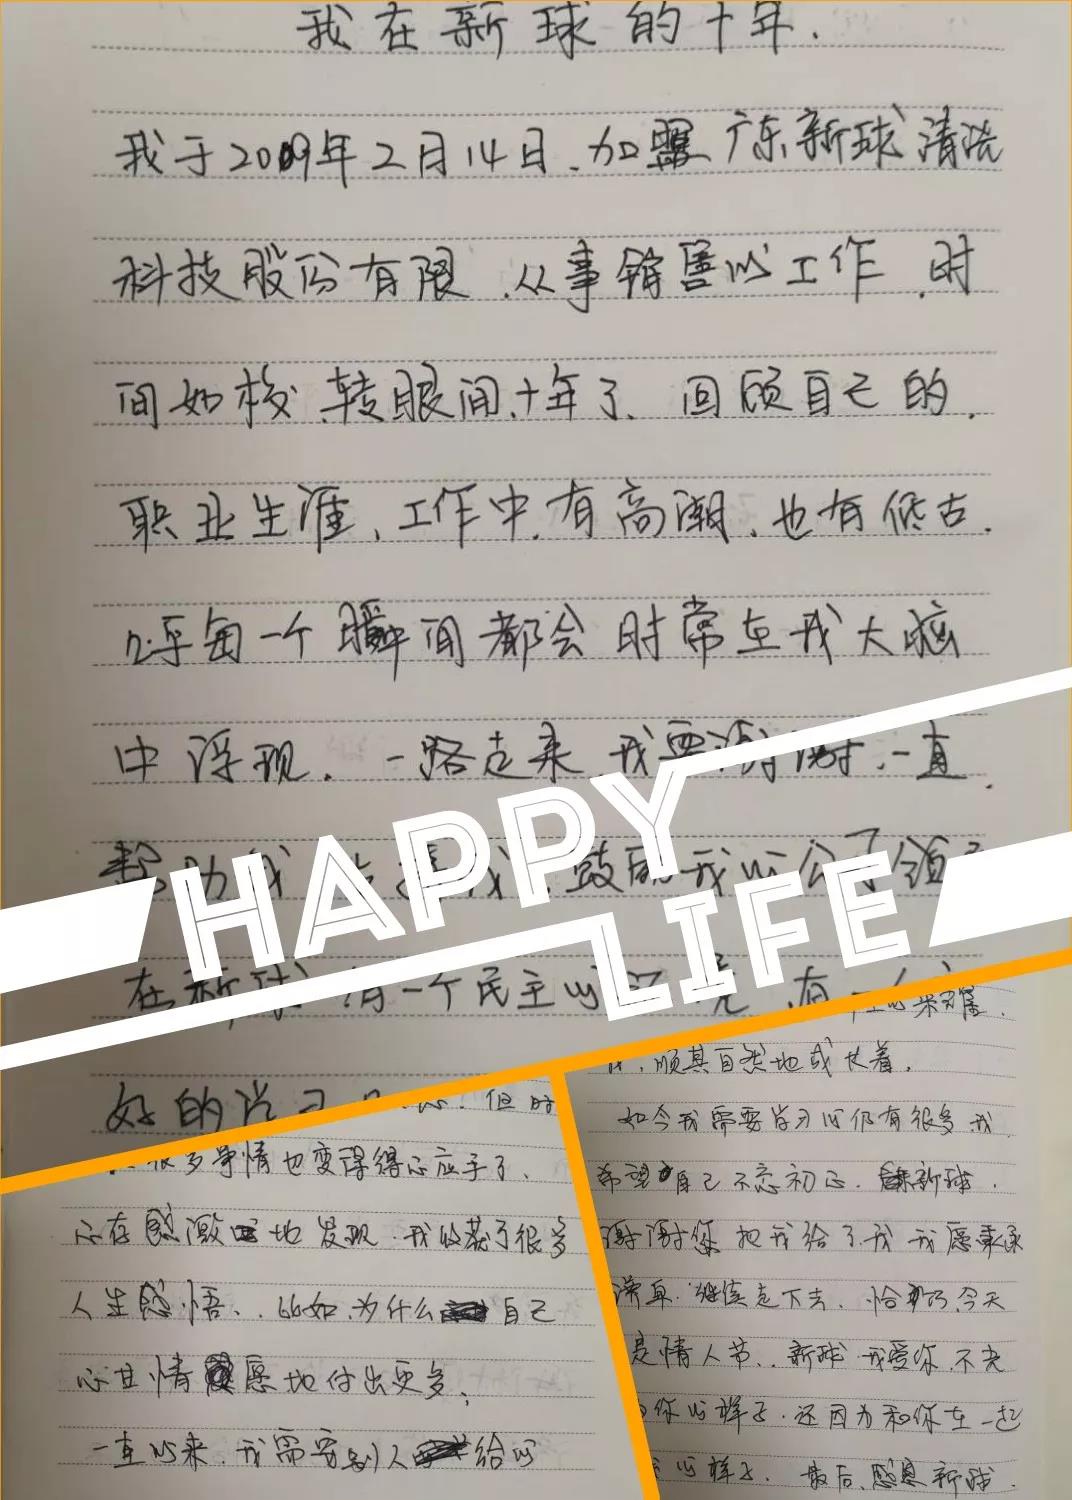 我在新球的十年.
我于2009年2月14日、加盟广东新球清洗
科技股份有限、从事销售的工作、时
间如梭、转眼间、十年了、回顾自己的、
职业生涯、工作中、有高潮、也有低古、
几乎每一个瞬间都会时常在我大脑
中浮现. 一路走来、我要谢谢、一直、
帮助我 我、鼓励我的公司领
在新球、有一个民主的 有一个
好的学习 但时
HAPPY
LIFE
很多事情也变得得心应手了、
心存感激地发现、我收获了很多
人生感悟、、比如、为什么自己
心甘情愿地付出更多、
一直以来、我需要别人给的
顺其自然地成长着、
如今我需要学习的仍有很多、我
希望自己不忘初心. 新球、
谢谢您把我给了我、我愿乘承
继续走下去、恰巧今天
是情人节、、新球、我爱你、不光
你的样子、还因为和你在一起
的样子、最后、感恩新球、